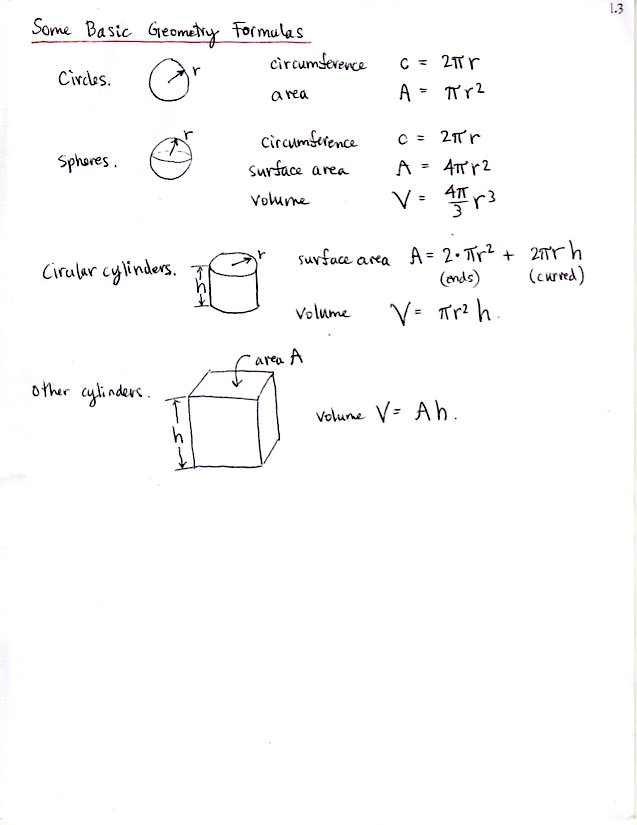 1.3
Some Basic Geometry Formulas
Circles. r circumference c = 2πr
area A = πr²
Spheres. r circumference c = 2πr
surface area A = 4πr²
volume V = 4π/3 r³
Cirular cylinders. r h surface area A = 2·πr² + 2πr h
(ends) (curved)
volume V = πr² h.
area A
Other cylinders. h volume V = Ah.